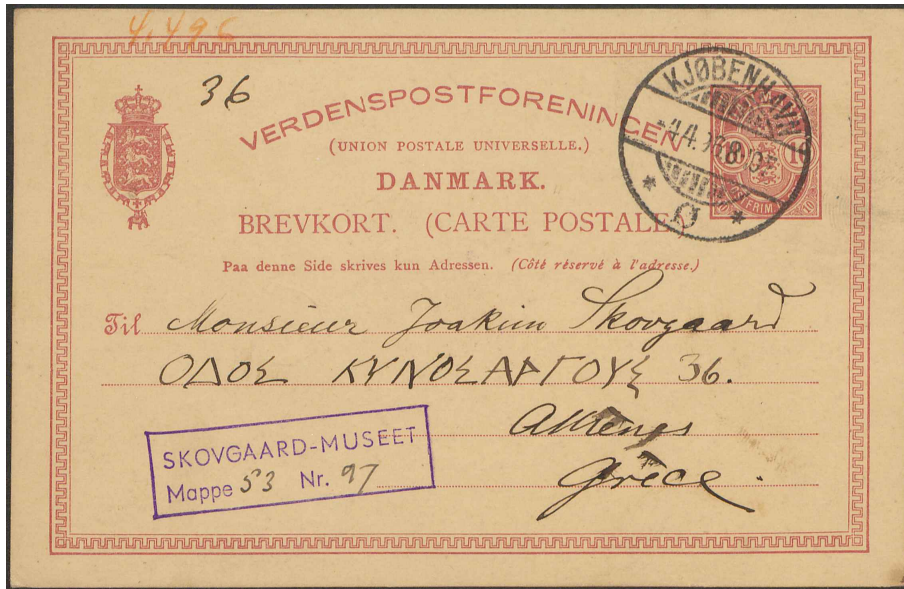 4.496
36
VERDENSPOSTFORENINGEN
(UNION POSTALE UNIVERSELLE.)
DANMARK.
BREVKORT. (CARTE POSTALE)
Paa denne Side skrives kun Adressen. (Côté réservé à l'adresse.)
KJØBENHAVN
Ø
10
Til Monsieur Joakim Skovgaard
ΟΔΟΣ ΚΥΝΟΣΑΡΓΟΥΣ 36.
Athènes
Grèce.
SKOVGAARD-MUSEET
Mappe 53 Nr. 97